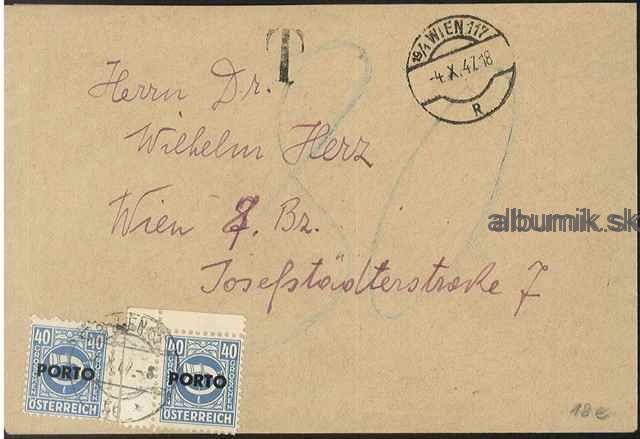 T
19/1 WIEN 117
-4.X.47.18
R
80
Herrn Dr.
Wilhelm Herz
Wien 8. Bz.
Josefstädterstraße 7
albumik.sk
40 40
GROSCHEN GROSCHEN
PORTO
ÖSTERREICH
40 40
GROSCHEN GROSCHEN
PORTO
ÖSTERREICH
X.47.-8
18 €